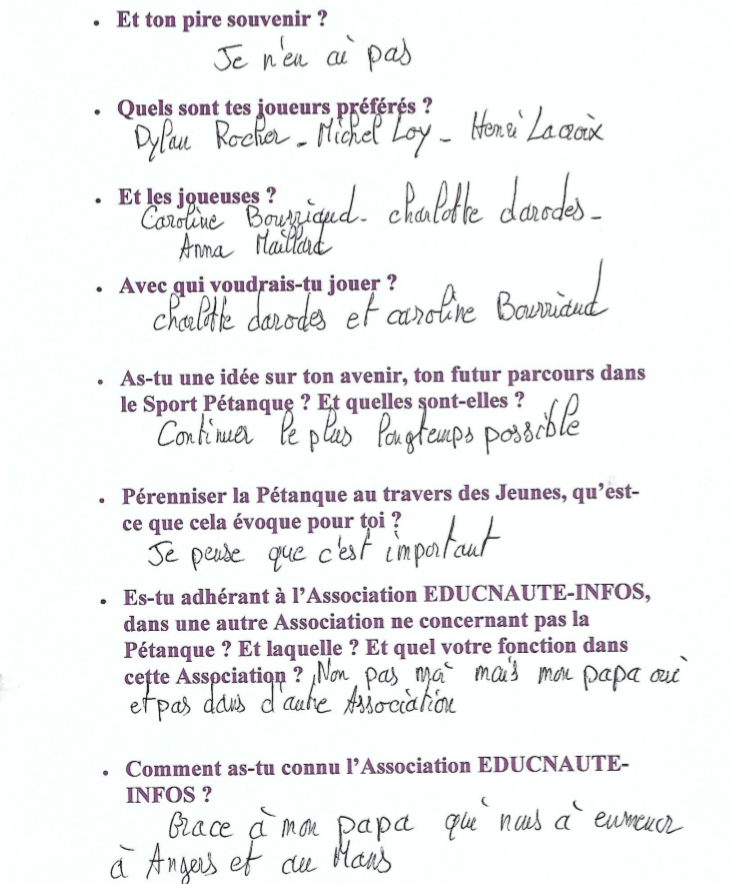 • Et ton pire souvenir ?
Je n'en ai pas
• Quels sont tes joueurs préférés ?
Dylan Rocher - Michel Loy - Henri Lacroix
• Et les joueuses ?
Caroline Bourriaud - charlotte darodes -
Anna Maillard
• Avec qui voudrais-tu jouer ?
charlotte darodes et caroline Bourriaud
• As-tu une idée sur ton avenir, ton futur parcours dans
le Sport Pétanque ? Et quelles sont-elles ?
Continuer le plus longtemps possible
• Pérenniser la Pétanque au travers des Jeunes, qu'est-
ce que cela évoque pour toi ?
Je pense que c'est important
• Es-tu adhérant à l'Association EDUCNAUTE-INFOS,
dans une autre Association ne concernant pas la
Pétanque ? Et laquelle ? Et quel votre fonction dans
cette Association ? Non pas moi mais mon papa oui
et pas dans d'autre Association
• Comment as-tu connu l'Association EDUCNAUTE-
INFOS ?
Grace à mon papa qui nous à emmener
à Angers et au Mans